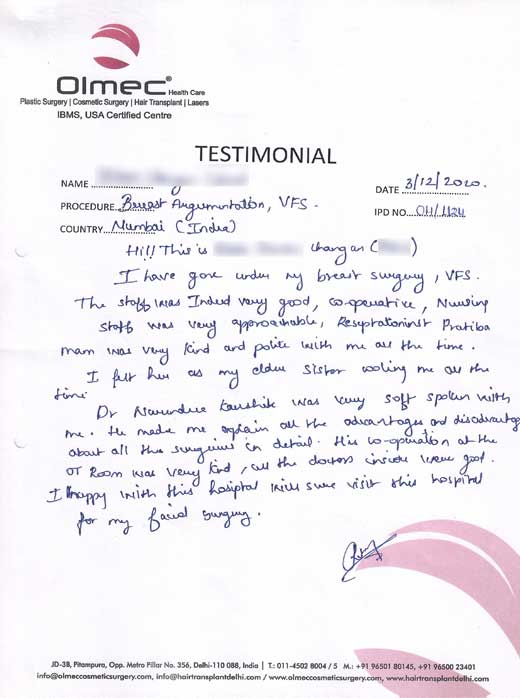 Olmec®
Health Care
Plastic Surgery | Cosmetic Surgery | Hair Transplant | Lasers
IBMS, USA Certified Centre
TESTIMONIAL
NAME
DATE 3/12/2020.
PROCEDURE Breast Augumentation, VFS.
IPD NO. OH/1124
COUNTRY Mumbai (India)
Hi!! This is changan ( )
I have gone under my breast surgery, VFS.
The staff was Indeed very good, co-operative, Nursing
staff was very approachable, Pratiba
mam was very kind and polite with me all the time.
I felt her as my elder sister me all the
time
Dr Narendra Kaushik was very soft spoken with
me. He made me explain all the advantages and disadvantages
about all the surgeries in detail. His co-operation at the
OT Room was very kind, all the doctors inside were good.
I happy with this hospital will sure visit this hospital
for my facial surgery.
JD-3B, Pitampura, Opp. Metro Pillar No. 356, Delhi-110 088, India | T.: 011-4502 8004 / 5 M.: +91 96501 80145, +91 96500 23401
info@olmeccosmeticsurgery.com, info@hairtransplantdelhi.com / www.olmeccosmeticsurgery.com, www.hairtransplantdelhi.com